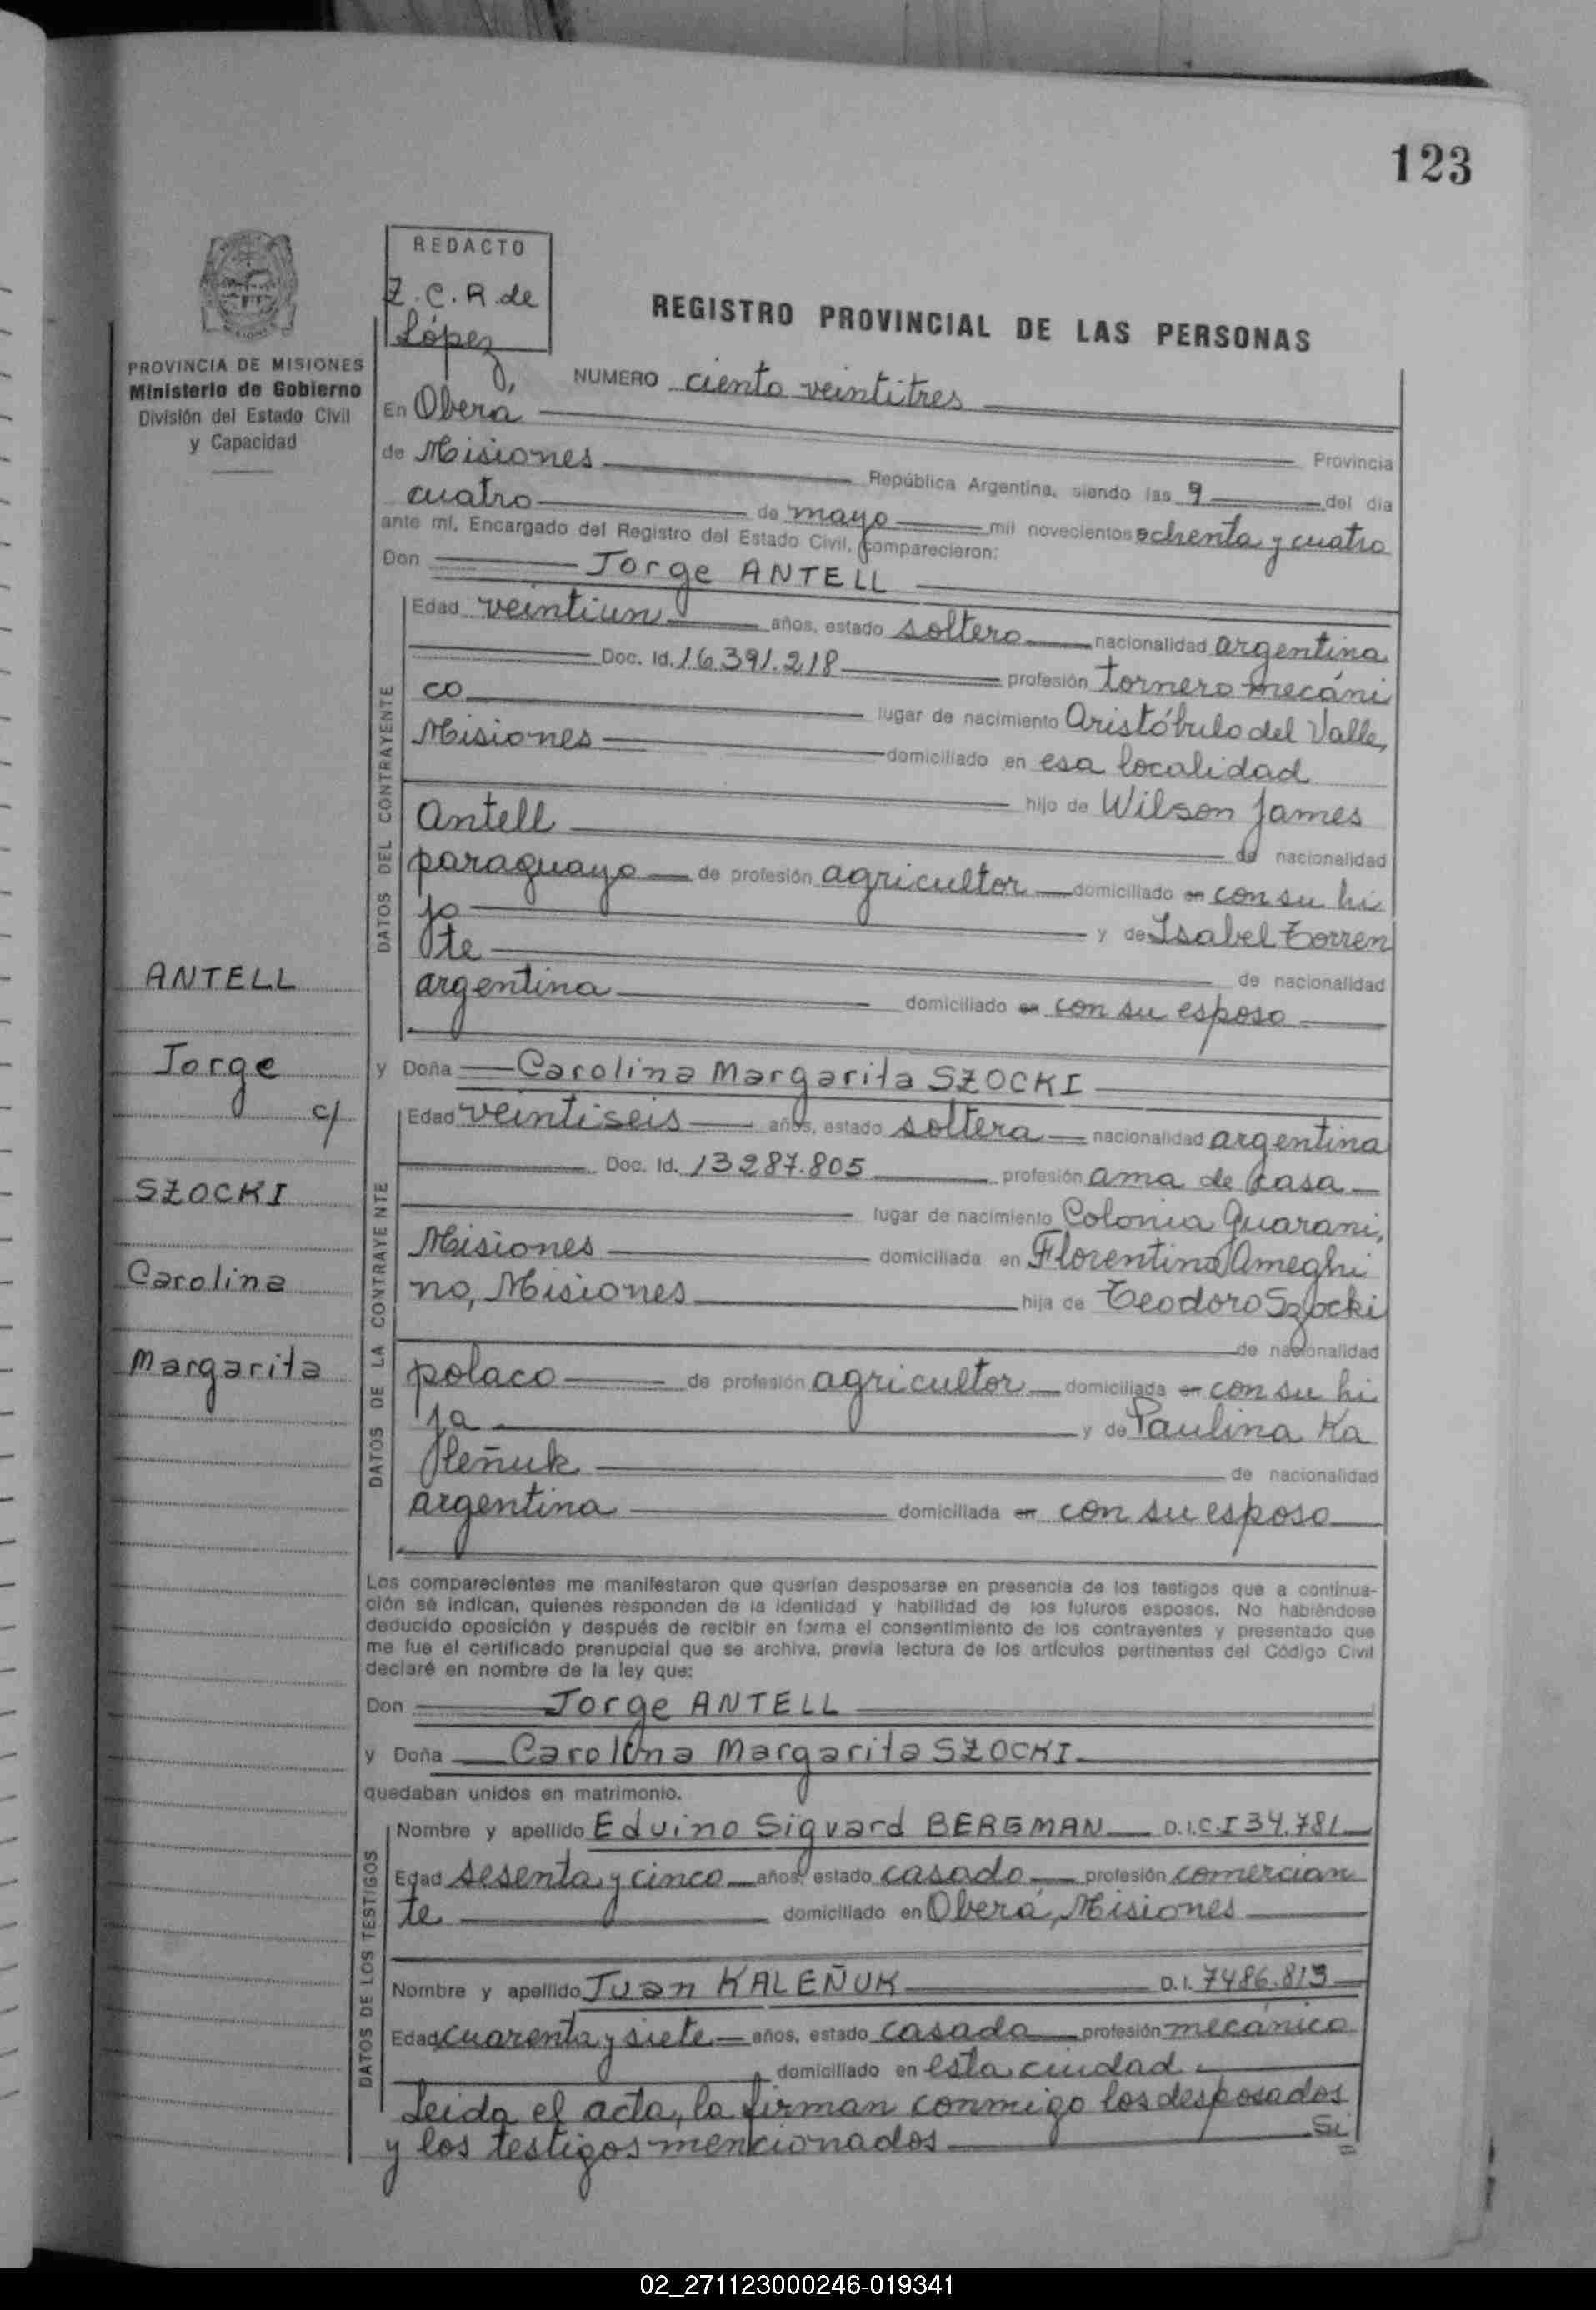 123
REDACTO
Z.C.R. de
López
REGISTRO PROVINCIAL DE LAS PERSONAS
PROVINCIA DE MISIONES
Ministerio de Gobierno
División del Estado Civil
y Capacidad
NUMERO ciento veintitres
En Oberá
Provincia
de Misiones República Argentina, siendo las 9 del día
cuatro de mayo mil novecientos ochenta y cuatro
ante mí, Encargado del Registro del Estado Civil, comparecieron:
Don Jorge ANTELL
DATOS DEL CONTRAYENTE
Edad veintiun años, estado soltero nacionalidad argentina
Doc. Id. 16.391.218 profesión tornero mecáni
co lugar de nacimiento Aristóbulo del Valle,
Misiones domiciliado en esa localidad
hijo de Wilson James
Antell de nacionalidad
paraguayo de profesión agricultor domiciliado en con su hi
jo y de Isabel Torren
te de nacionalidad
argentina domiciliado en con su esposo
ANTELL
Jorge
c/
SZOCKI
Carolina
Margarita
y Doña Carolina Margarita SZOCKI
DATOS DE LA CONTRAYENTE
Edad veintiseis años, estado soltera nacionalidad argentina
Doc. Id. 13287.805 profesión ama de casa
lugar de nacimiento Colonia Guarani,
Misiones domiciliada en Florentino Ameghi
no, Misiones hija de Teodoro Szocki
de nacionalidad
polaco de profesión agricultor domiciliada en con su hi
ja y de Paulina Ka
leñuk de nacionalidad
argentina domiciliada en con su esposo
Los comparecientes me manifestaron que querían desposarse en presencia de los testigos que a continua-
ción se indican, quienes responden de la identidad y habilidad de los futuros esposos. No habiéndose
deducido oposición y después de recibir en forma el consentimiento de los contrayentes y presentado que
me fue el certificado prenupcial que se archiva, previa lectura de los artículos pertinentes del Código Civil
declaré en nombre de la ley que:
Don Jorge ANTELL
y Doña Carolina Margarita SZOCKI
quedaban unidos en matrimonio.
DATOS DE LOS TESTIGOS
Nombre y apellido Eduino Siguard BERGMAN D.I.C.I 34.781
Edad sesenta y cinco años, estado casado profesión comercian
te domiciliado en Oberá, Misiones
Nombre y apellido Juan KALEÑUK D.I. 7486.813
Edad cuarenta y siete años, estado casado profesión mecánico
domiciliado en esta ciudad.
Leida el acta, la firman conmigo los desposados
y los testigos mencionados Si
02_271123000246-019341